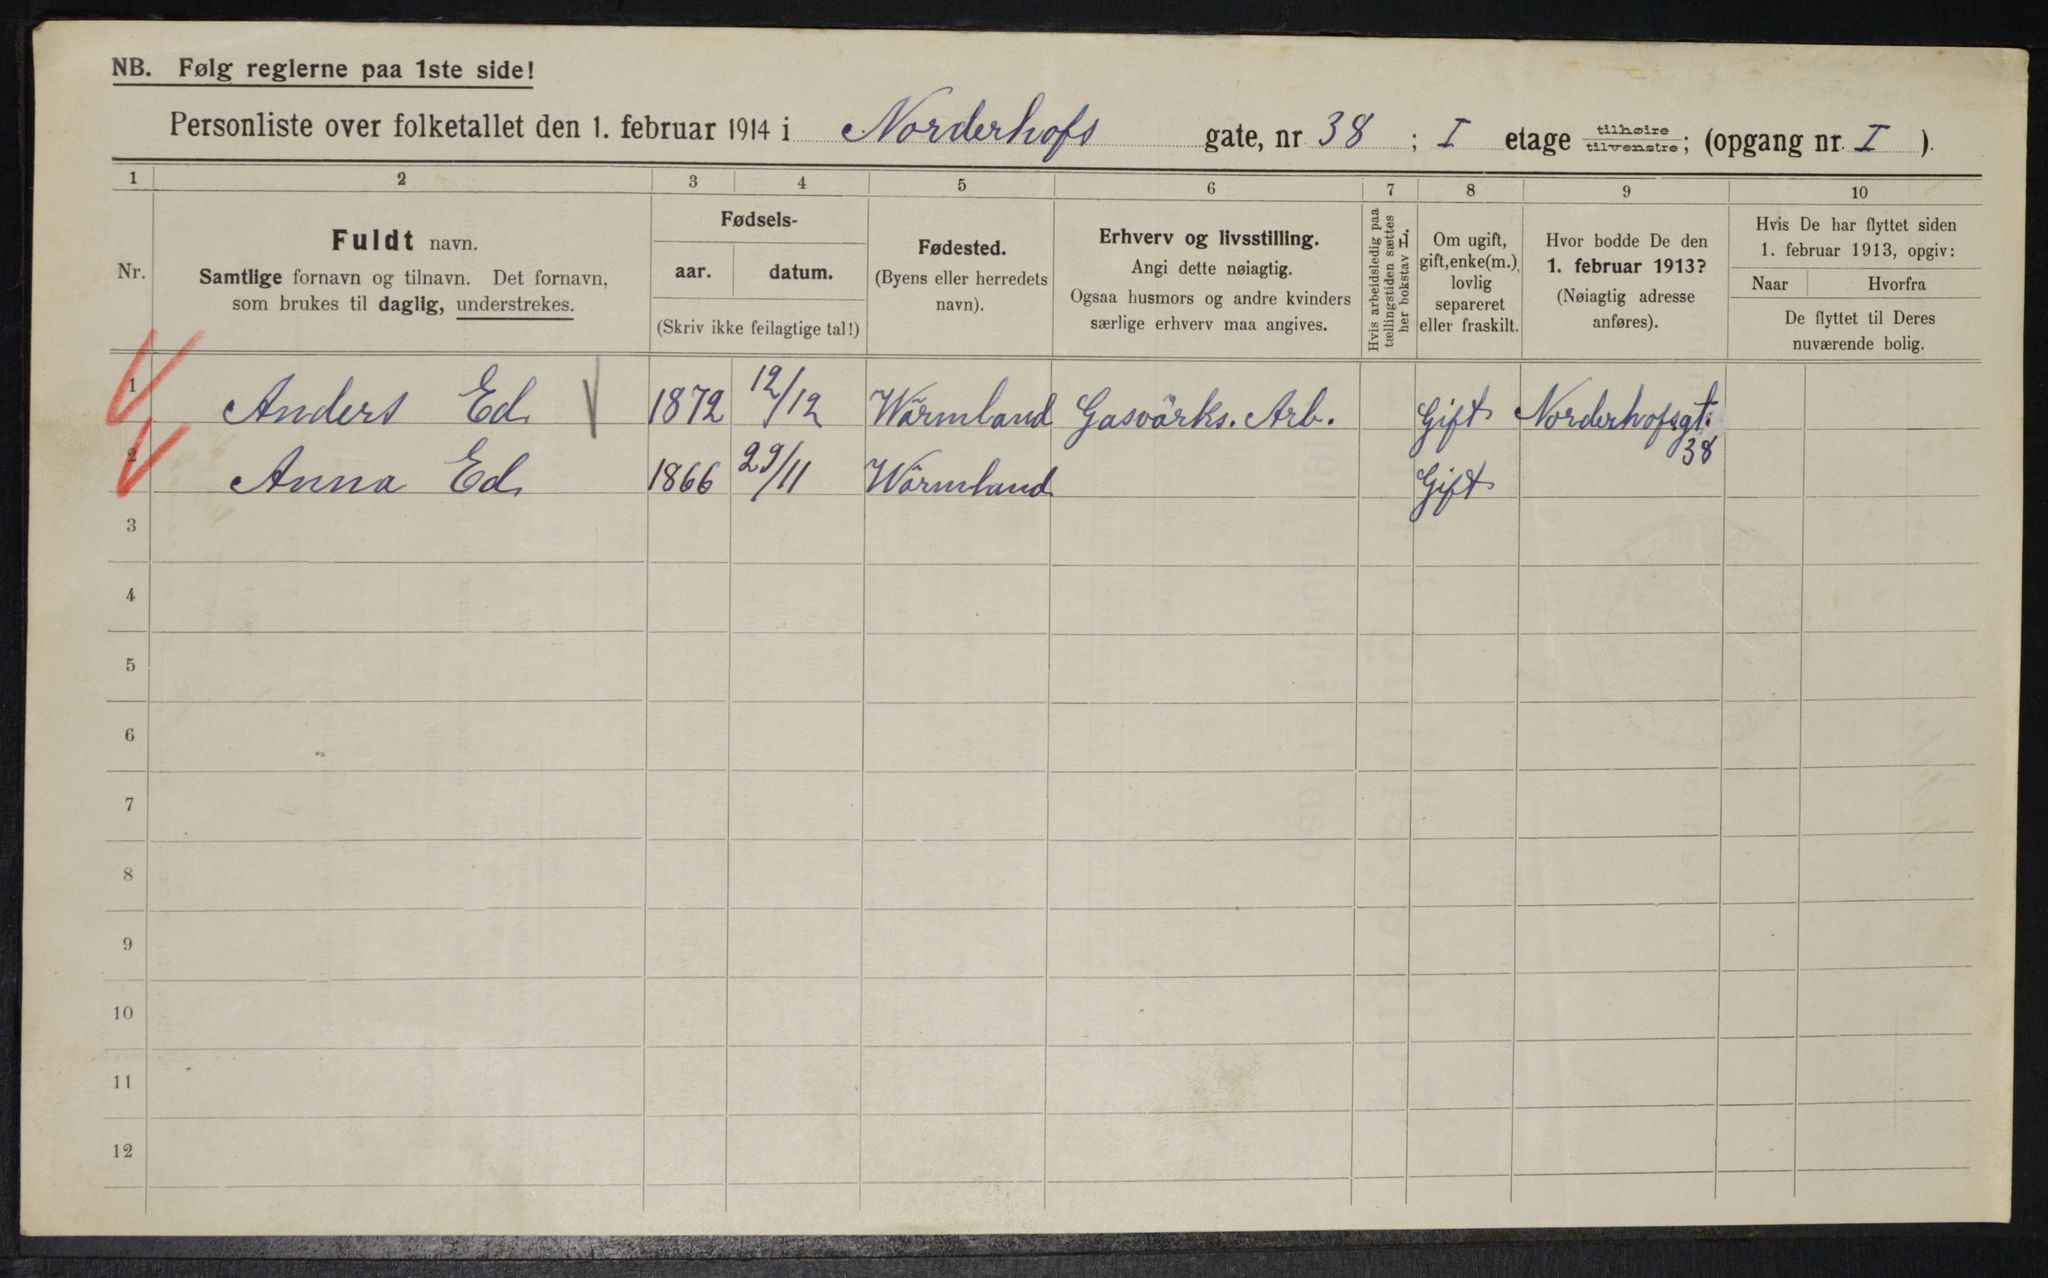 NB. Følg reglerne paa 1ste side!
Personliste over folketallet den 1. februar 1914 i Norderhofs gate, nr 38 ; I etage tilhøire tilvenstre; (opgang nr. I ).
1 2 3 4 5 6 7 8 9 10
Nr.
Fuldt navn.
Samtlige fornavn og tilnavn. Det fornavn,
som brukes til daglig, understrekes.
Fødsels-
aar. datum.
(Skriv ikke feilagtige tal!)
Fødested.
(Byens eller herredets
navn).
Erhverv og livsstilling.
Angi dette nøiagtig.
Ogsaa husmors og andre kvinders
særlige erhverv maa angives.
Hvis arbeidsledig paa
tællingstiden sættes
her bokstav L.
Om ugift,
gift, enke(m.),
lovlig
separeret
eller fraskilt.
Hvor bodde De den
1. februar 1913?
(Nøiagtig adresse
anføres).
Hvis De har flyttet siden
1. februar 1913, opgiv:
Naar Hvorfra
De flyttet til Deres
nuværende bolig.
1 Anders Ed 1872 12/12 Wärmland Gasvärks. Arb. Gift Norderhofsgt.
38
2 Anna Ed 1866 29/11 Wärmland Gift
3
4
5
6
7
8
9
10
11
12